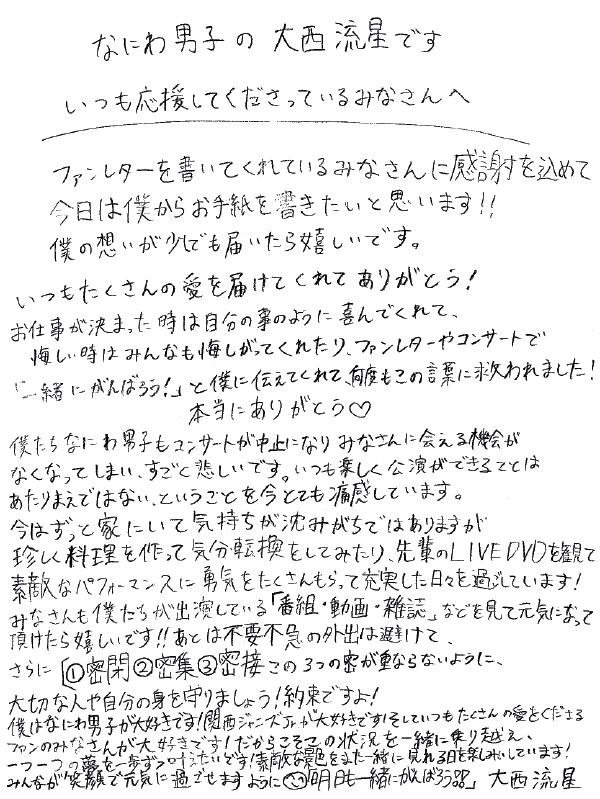 なにわ男子の 大西流星です
いつも応援してくださっているみなさんへ
ファンレターを書いてくれているみなさんに感謝を込めて
今日は僕からお手紙を書きたいと思います!!
僕の想いが少しでも届いたら嬉しいです。
いつもたくさんの愛を届けてくれてありがとう!
お仕事が決まった時は自分の事のように喜んでくれて、
悔しい時はみんなも悔しがってくれたり、ファンレターやコンサートで
「一緒にがんばろう!」と僕に伝えてくれて、何度もこの言葉に救われました!
本当にありがとう♡
僕たちなにわ男子もコンサートが中止になりみなさんに会える機会が
なくなってしまい、すごく悲しいです。いつも楽しく公演ができることは
あたりまえではない、ということを今とても痛感しています。
今はずっと家にいて気持ちが沈みがちではありますが
珍しく料理を作って気分転換をしてみたり、先輩のLIVE DVDを観て
素敵なパフォーマンスに勇気をたくさんもらって充実した日々を過ごしています!
みなさんも僕たちが出演している「番組・動画・雑誌」などを見て元気になって
頂けたら嬉しいです!!あとは不要不急の外出は避けて、
さらに「①密閉②密集③密接この3つの密が重ならないように、
大切な人や自分の身を守りましょう!約束ですよ!
僕はなにわ男子が大好きです!関西ジャニーズJr.が大好きです!そしていつもたくさんの愛をくださる
ファンのみなさんが大好きです!だからこそこの状況を一緒に乗り越え、
一つ一つの夢を一歩ずつ叶えたいです!素敵な景色をまた一緒に見れる日を楽しみにしています!
みんなが笑顔で元気に過ごせますように☺「明日も一緒にがんばろう」 大西流星